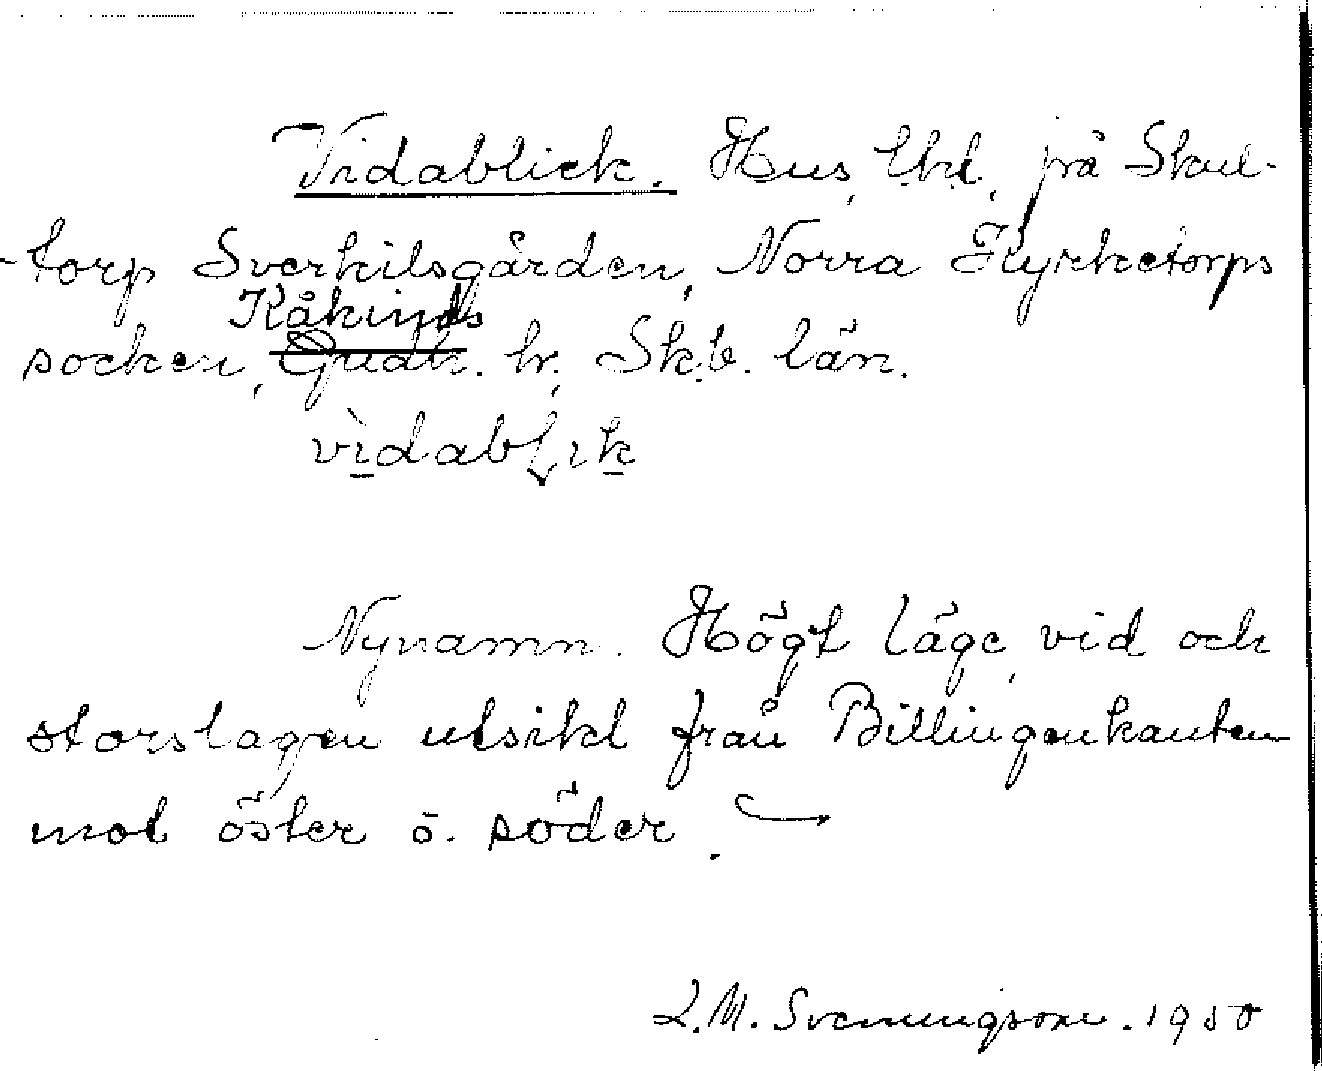 Vidablick. Hus, lht, på Skul-
-torp Sverkilsgården, Norra Kyrketorps
Kåkinds
socken, Gudh. hr., Skb. län.
vìdablik
Nynamn. Högt läge, vid och
storslagen utsikt från Billingenkanten
mot öster o. söder.
L.M. Svenningsson. 1950